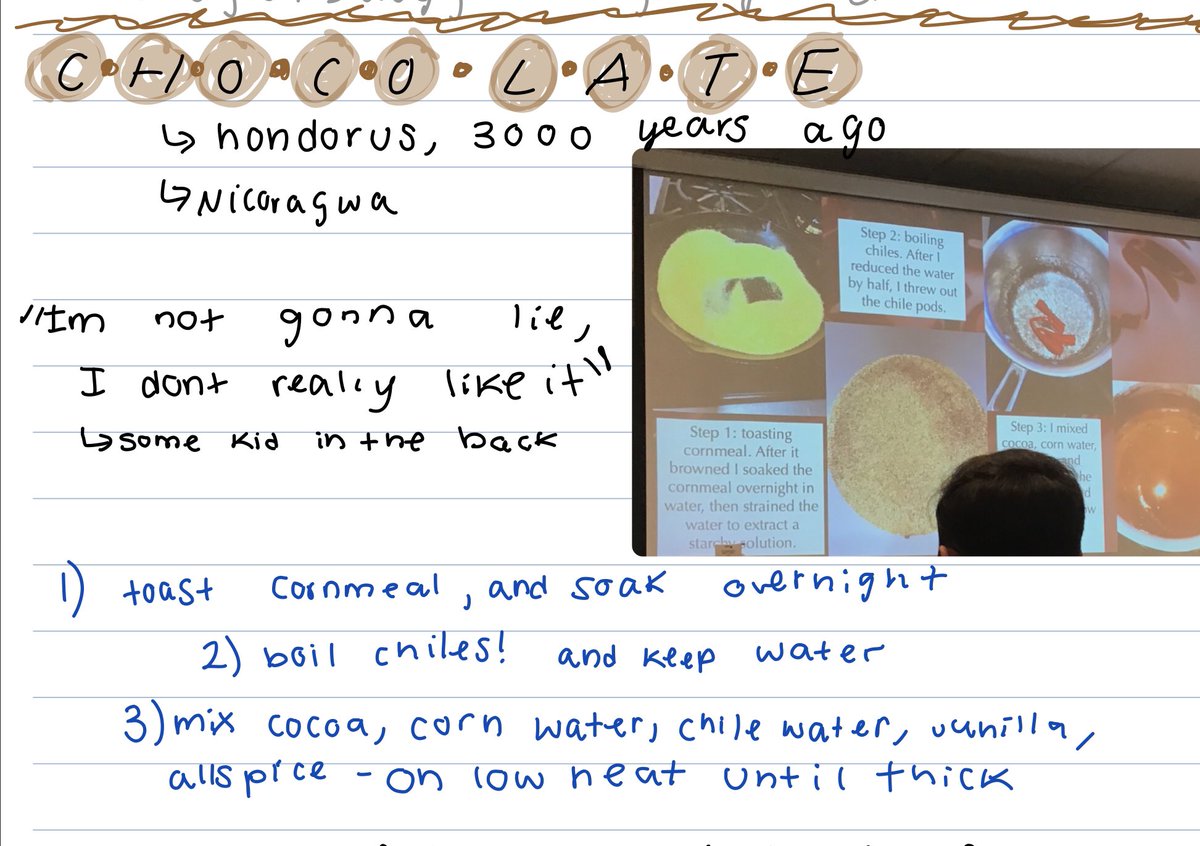 C•H•O•C•O•L•A•T•E
↳ hondorus, 3000 years ago
↳ Nicoragwa
"Im not gonna lie,
I dont really like it"
↳ some kid in the back
Step 1: toasting
cornmeal. After it
browned I soaked the
cornmeal overnight in
water, then strained the
water to extract a
starchy solution.
Step 2: boiling
chiles. After I
reduced the water
by half, I threw out
the chile pods.
Step 3: I mixed
cocoa, corn water,
1) toast cornmeal, and soak overnight
2) boil chiles! and keep water
3) mix cocoa, corn water, chile water, vanilla,
allspice - on low heat until thick